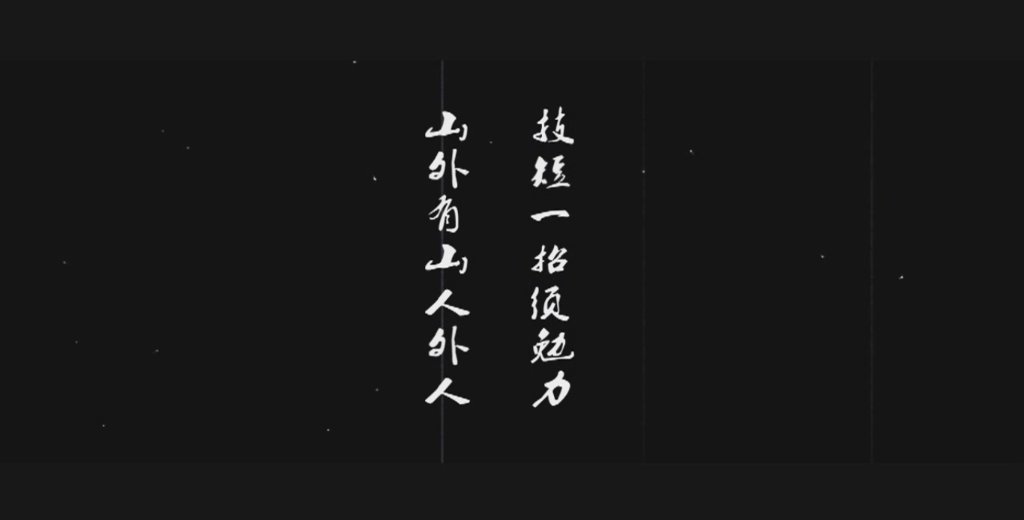 技短一招须勉力
山外有山人外人